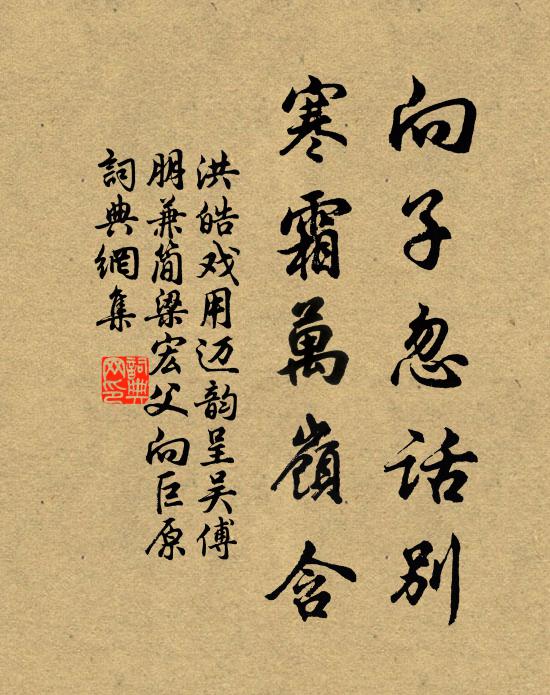 向子忽话别
寒霜萬嶺含
洪皓戏用迈韵呈吴傅
朋兼简梁宏父向巨原
詞典網集
詞典
网印